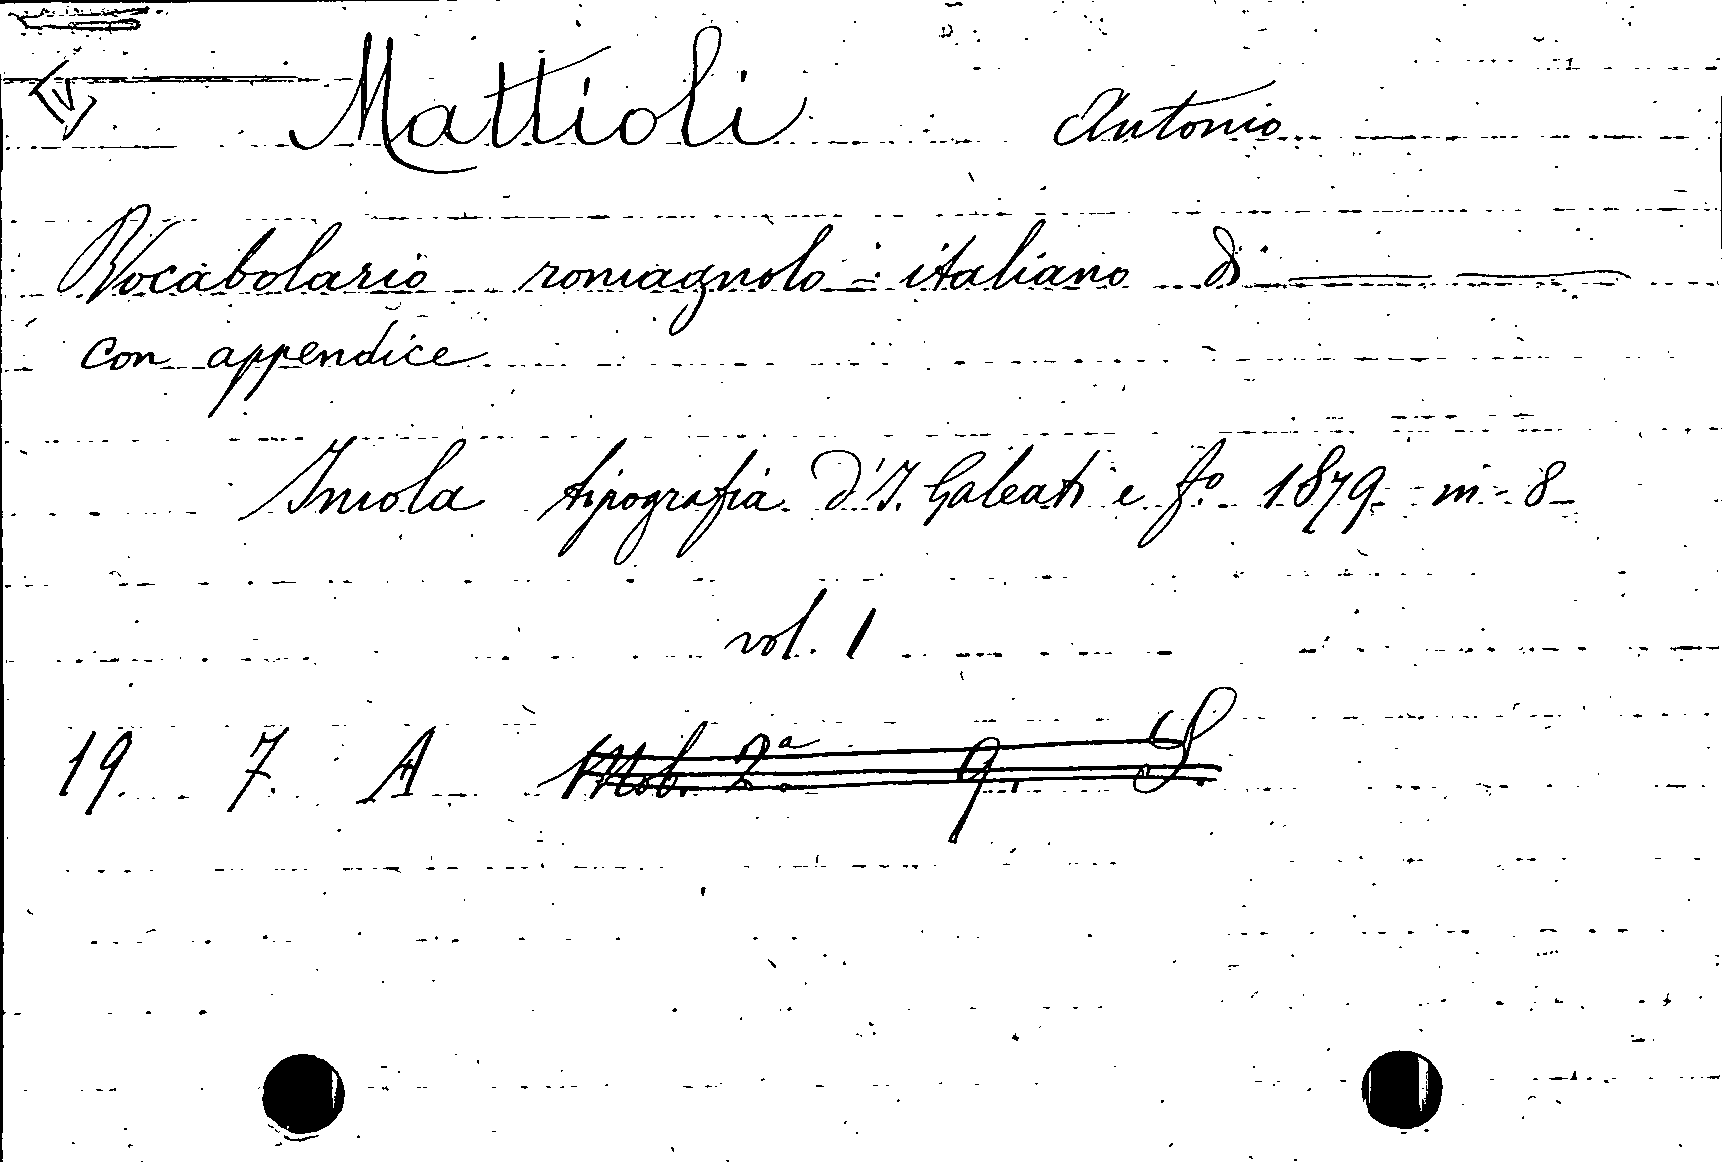 Mattioli Antonio
Vocabolario romagnolo-italiano di —— ——
con appendice
Imola tipografia d'I. Galeati e fº 1879 in-8
vol. 1
19. 7. A Mob. 2ª. 9. S.